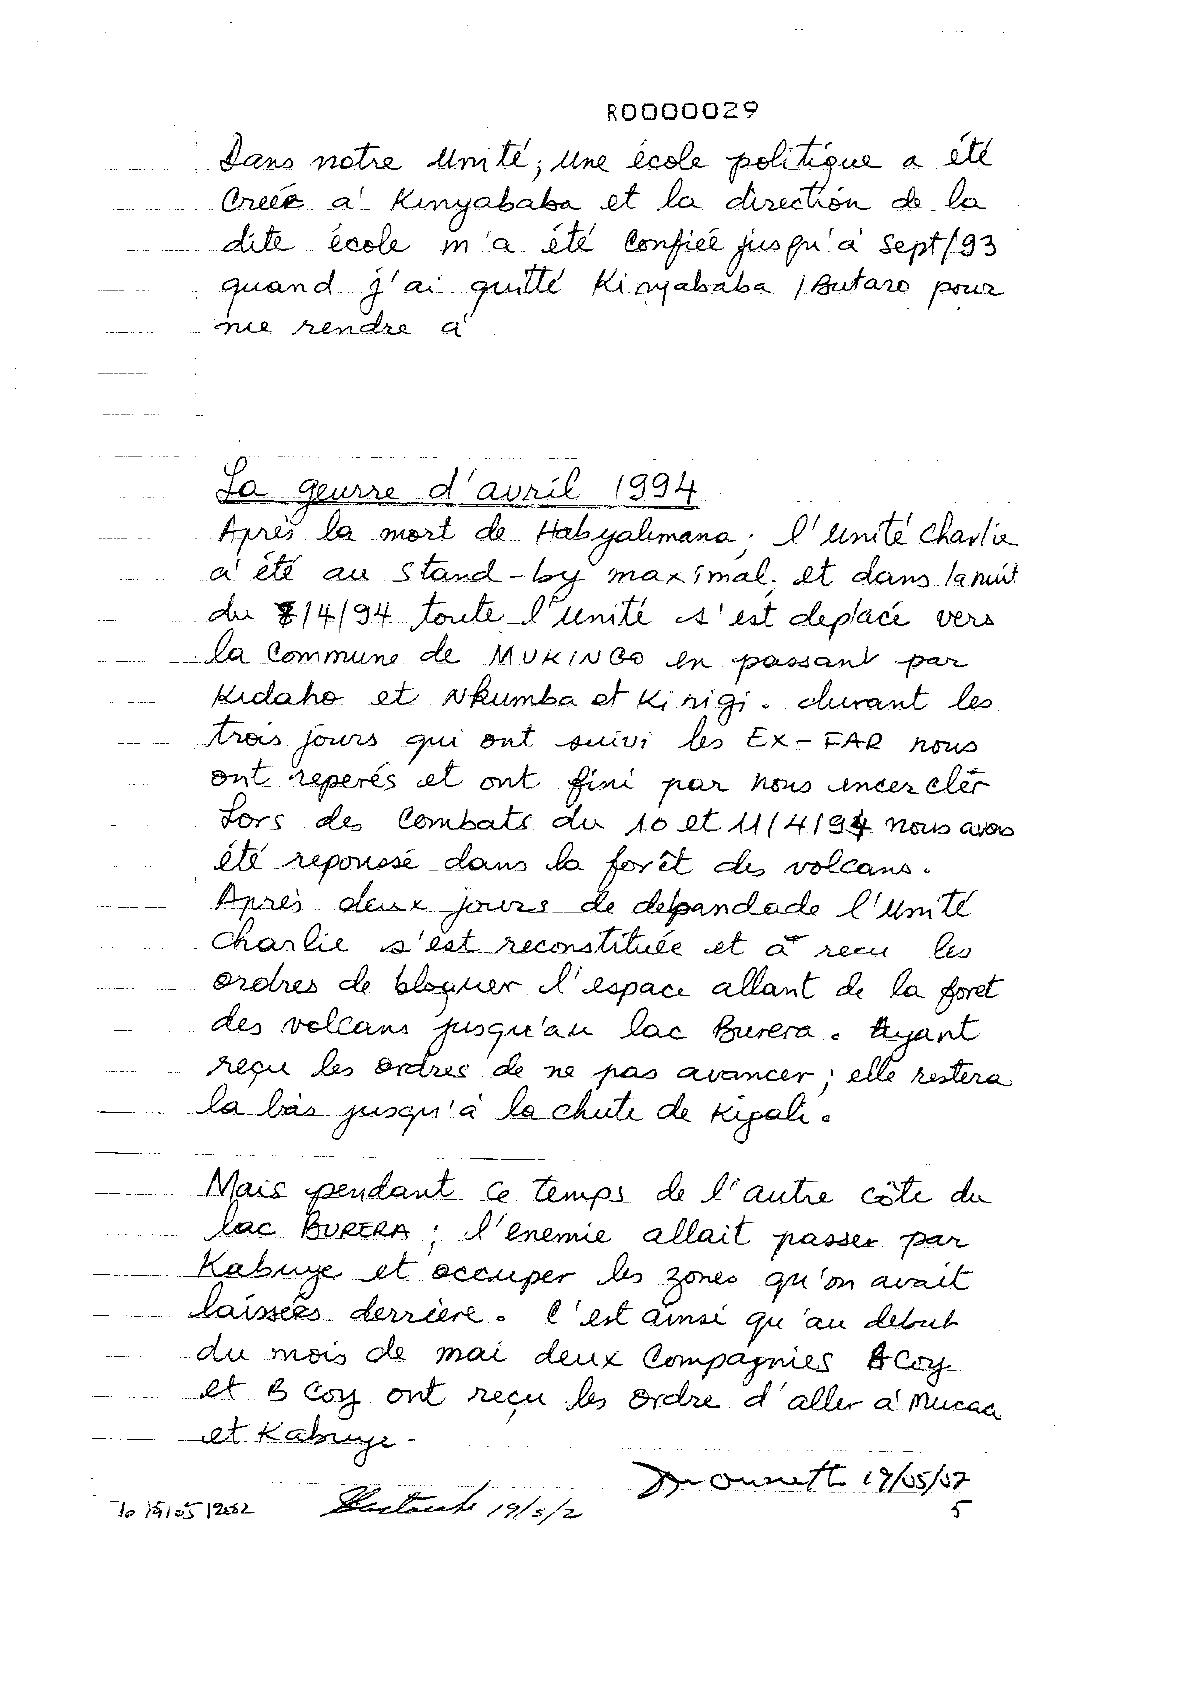 R0000029
Dans notre unité; une école politique a été
Creée a' Kinyababa et la direction de la
dite école m'a été Confieé jusqu'a' Sept/93
quand j'ai quitté Kinyababa /Butaro pour
me rendre a'
La geurre d'avril 1994
Après la mort de Habyalimana; l'unité charlie
a' été au Stand-by maximal; et dans la nuit
du 8/4/94 toute l'unité s'est deplacé vers
la Commune de MUKINGO en passant par
Kidaho et Nkumba et Kinigi. durant les
trois jours qui ont suivi les EX-FAR nous
ont reperés et ont fini par nous encerclér
Lors des Combats du 10 et 11/4/94 nous avons
été repoussé dans la forêt des volcans.
Après deux jours de debandade l'unité
charlie s'est reconstituée et a recu les
ordres de bloquer l'espace allant de la foret
des volcans jusqu'au lac Burera. Ayant
reçu les ordres de ne pas avancer; elle restera
la bàs jusqu'à la chute de Kigali.
Mais pendant ce temps de l'autre côte du
lac BURERA; l'enemie allait passer par
Kabuye et occuper les zones qu'on avait
laissées derriere. C'est ainsi qu'au debut
du mois de mai deux Compagnies A Coy
et B Coy ont reçu les ordre d'aller a'
et Kabuye.
19/05/02
19/5/2
5